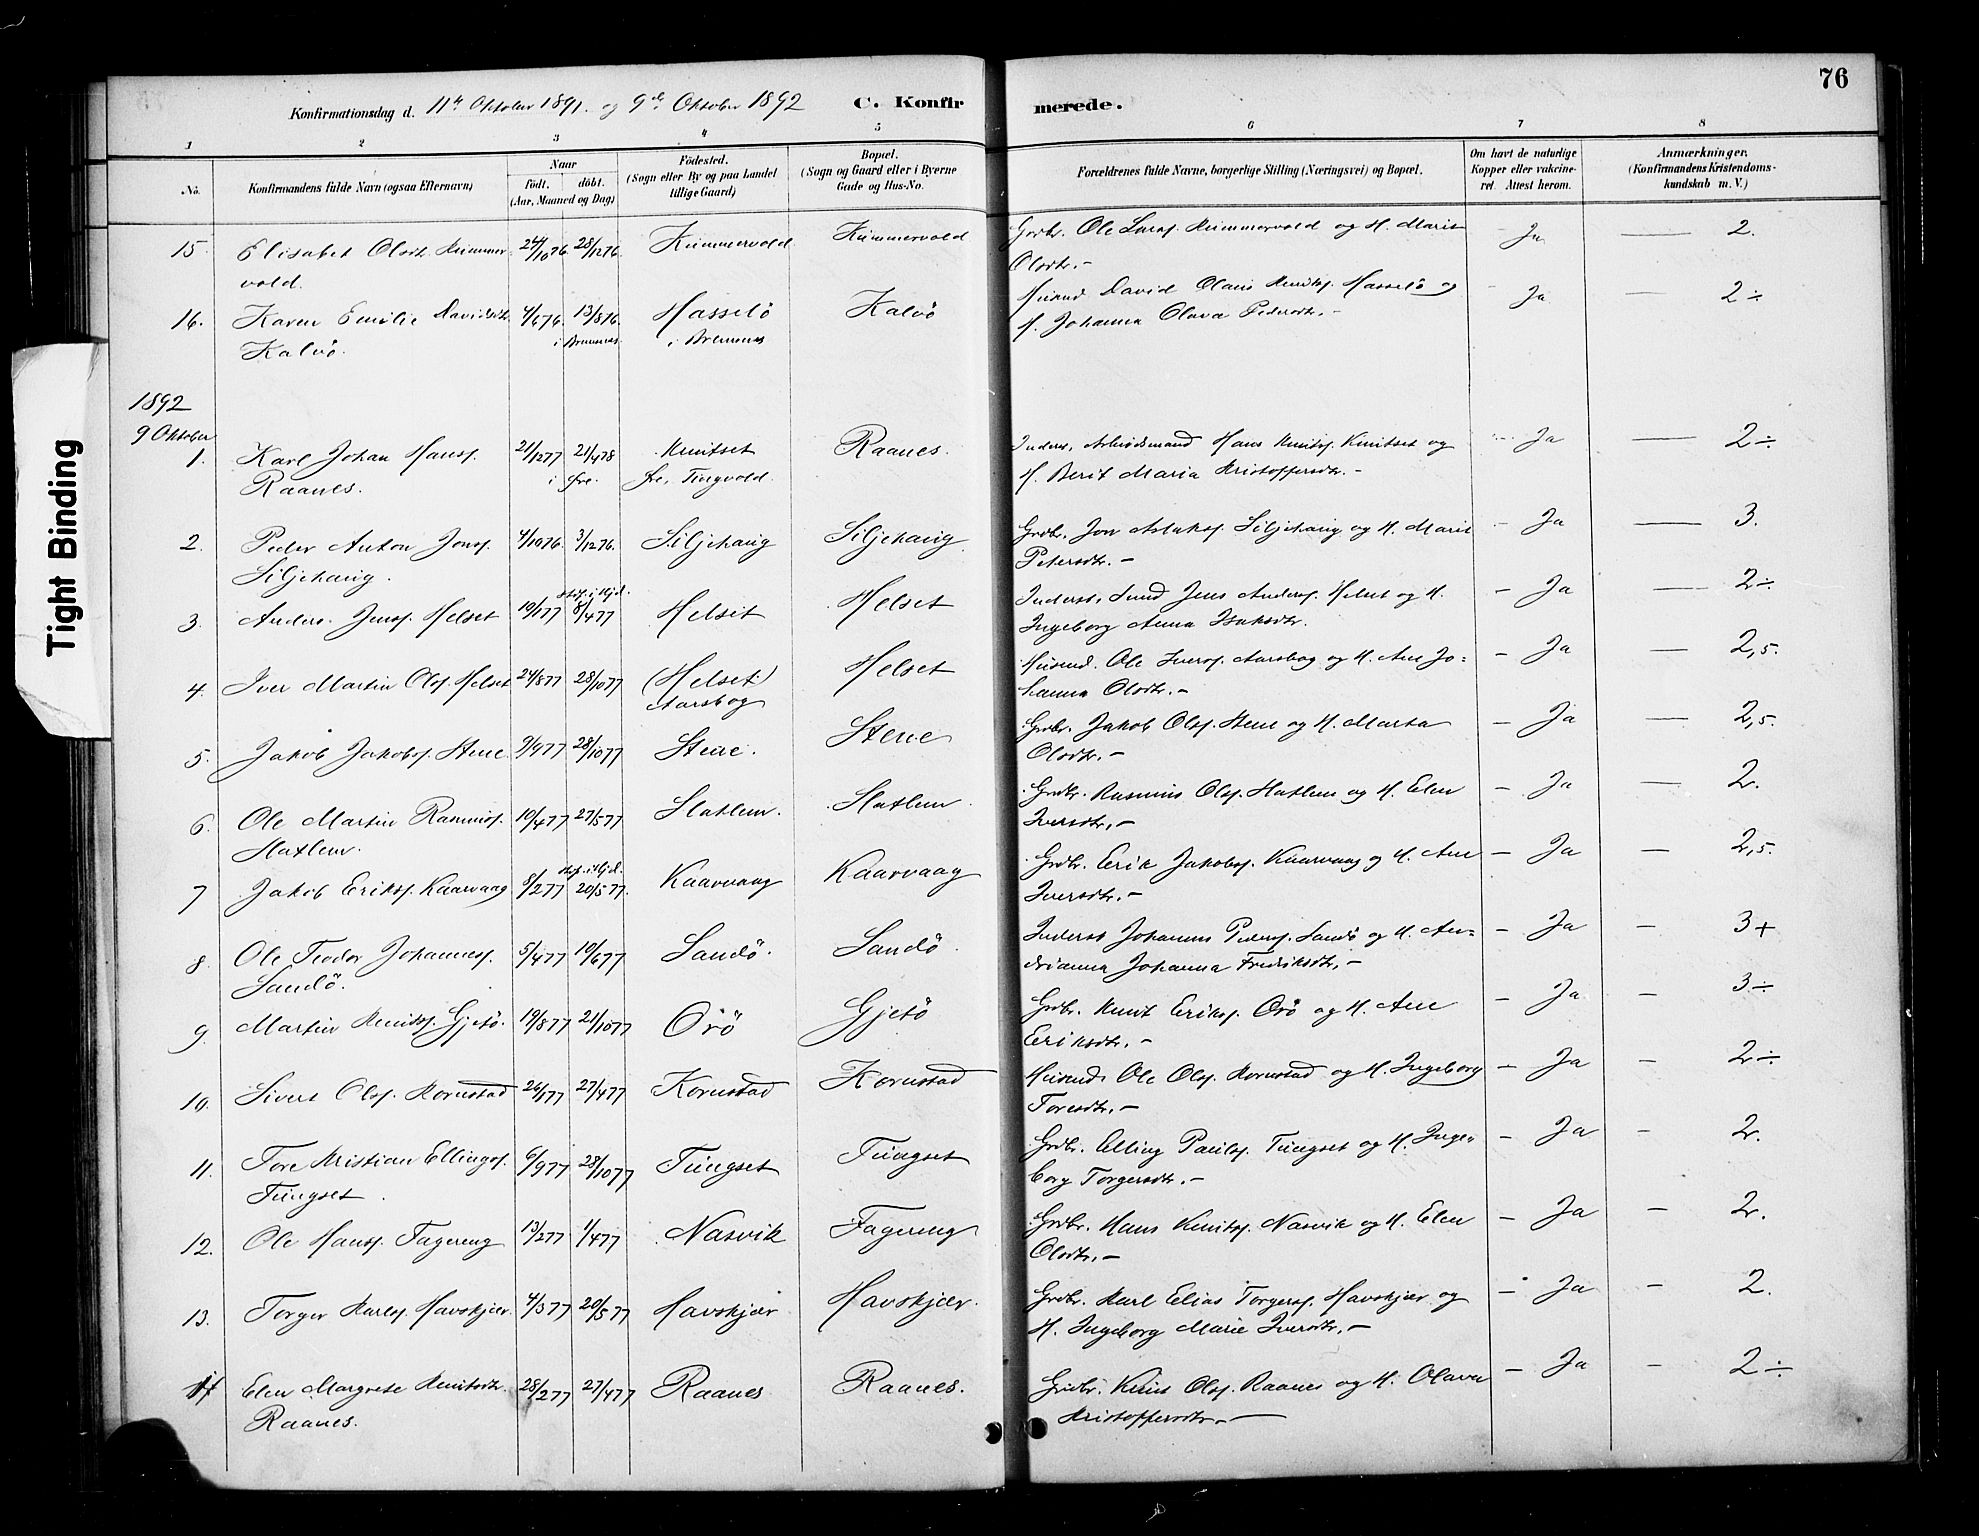 76
Konfirmationsdag d. 11te Oktober 1891. og 9de Oktober 1892 C. Konfirmerede.
1 2 3 4 5 6 7 8
No. Konfirmandens fulde Navn (ogsaa Efternavn) Naar født, døbt. (Aar, Maaned og Dag) Fødested. (Sogn eller By og paa Landet tillige Gaard) Bopæl. (Sogn og Gaard eller i Byerne Gade og Hus-No. Forældrenes fulde Navne, borgerlige Stilling (Næringsvei) og Bopæl. Om havt de naturlige Kopper eller vakcineret. Attest herom. Anmærkninger. (Konfirmandens Kristendomskundskab m. V.)
15. Elisabet Olsdtr. Kummer- 24/1076 28/1276. Kummervold Kummervold Grdbr. Ole Larss. Kummervold og H. Marit — Ja — 2.
vold. Olsdtr. —
16. Karen Emilie Davidsdtr. 4/676. 13/876. Hasselö Kalvö Husmd David Olaus Knudss. Hasselö og — Ja — 2÷
Kalvö. i Bremnes. i Bremnes H. Johanna Olava Pedersdtr. —
1892
9 Oktober
1. Karl Johan Hanss. 21/1277 21/478 Knutset Raanes. Inderst, Arbeidsmand Hans Knuts. Knutset og — Ja — 2÷
Raanes. i Øre. Øre, Tingvold. H. Berit Maria Kristoffersdtr. —
2. Peder Anton Jonss. 4/1076. 3/1276. Siljehaug Siljehaug Grdbr. Jon Aslaks. Siljehaug og H. Marit — Ja — 3.
Siljehaug. Petersdtr. —
3. Anders Jenss. Helset 10/177 8/477 Helset Helset Inderst, Smed Jens Anders. Helset og H. — Ja — 2÷
Ingeborg Anna Isaksdtr.
4. Iver Martin Olss. Helset 24/877 28/1077 (Helset) Helset Husmd. Ole Iverss. Aarsbog og H. Ane Jo= — Ja — 2,5.
Aarsbog hanna Olsdtr. —
5. Jakob Jakobss. Stene 9/977 28/1077 Stene. Stene Grdbr. Jakob Olss. Stene og H. Marta — Ja — 2,5.
Olsdtr. —
6. Ole Martin Rasmuss. 10/477 27/577 Hatlem. Hatlem. Grdbr. Rasmus Olss. Hatlem og H. Elen — Ja — 2.
Hatlem. Iversdtr. —
7 Jakob Erikss. Kaarvaag 8/277 20/577. Kaarvaag Kaarvaag Grdbr. Erik Jakobss. Kaarvaag og H. Ane — Ja — 2,5.
Iversdtr. —
8. Ole Teodor Johanness. 5/477 10/677 Sandö. Sandö. Inderst Johannes Peders. Sandö og H. An= — Ja — 3+
Sandö. drianna Johanna Fredriksdtr. —
9. Martin Knutss. Gjetö. 19/877 21/1077 Orö Gjetö Grdbr. Knut Erikss. Orö og H. Ane — Ja — 3÷
Eriksdtr. —
10. Sivert Olss. Kornstad 26/177 27/477 Kornstad Kornstad Husmd. Ole Olss. Kornstad og H. Ingeborg — Ja — 2÷
Toresdtr. —
11. Tore Kristian Ellingss. 6/977 28/1077 Tungset Tungset Grdbr. Elling Pauls. Tungset og H. Inge- — Ja — 2.
Tungset. borg Torgersdtr. —
12. Ole Hanss. Fagereng 13/277 1/477 Nasvik Fagereng Grdbr. Hans Knuts. Nasvik og H. Elen — Ja — 2.
Olsdtr. —
13. Torger Karls. Havskjær. 4/377 20/577 Havskjær Havskjær. Grdbr. Karl Elias Torgerss. Havskjær og — Ja — 2.
H. Ingeborg Marie Iversdtr. —
14 Elen Margrete Knutsdtr. 28/277 27/477 Raanes Raanes. Grdbr. Knut Olss. Raanes og H. Olava — Ja — 2÷
Raanes. Kristoffersdtr. —
Tight Binding